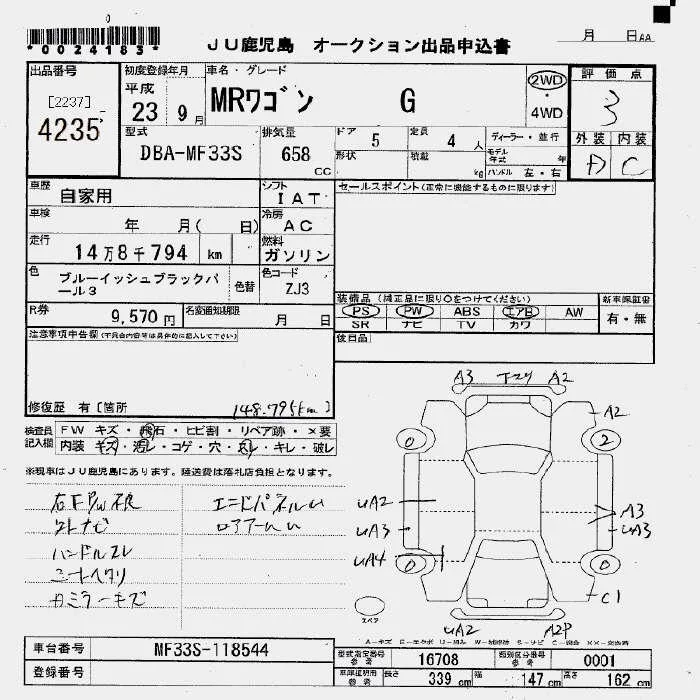 *00241183*
JU鹿児島 オークション出品申込書
月 日AA
出品番号
[2237]
4235
初度登録年月
平成
23 9月
車名・グレード
MRワゴン G
2WD
・
4WD
評価点
3
外装 内装
A C
型式
DBA-MF33S
排気量
658
CC
ドア 5
定員 4 人
ディーラー・並行
形状
積載
kg
モデル年式 年
ハンドル 左・右
車歴
自家用
シフト
IAT
セールスポイント(正常に機能するものに限ります)
車検
年 月( 日)
冷房
AC
走行
14万8千794 km
燃料
ガソリン
色
ブルーイッシュブラックパール3
色替
色コード
ZJ3
装備品(純正品に限り○をつけてください)
新車保証書
PS PW ABS エアB AW
有・無
SR ナビ TV カワ
R券
9,570円
名変通知期限
月 日
後日品
注意事項申告欄(不具合内容等は具体的に記入して下さい)
修復歴 有[箇所 148.795km]
検査員記入欄
FW キズ・飛石・ヒビ割・リペア跡・×要
内装 キズ・汚レ・コゲ・穴・スレ・キレ・破レ
※現車はJU鹿児島にあります。陸送費は落札店負担となります。
外ナビ
ハンドルスレ
シートヘタリ
エンドパネルU
A3 A2
A2
0 2
UA2
A3
UA3 UA3
UA4
0 0
C1
スペア
UA2 A2P
車台番号
MF33S-118544
登録番号
型式指定番号
参考
16708
類別区分番号
参考
0001
車庫証明用
参考
長さ 339 cm
幅 147 cm
高さ 162 cm